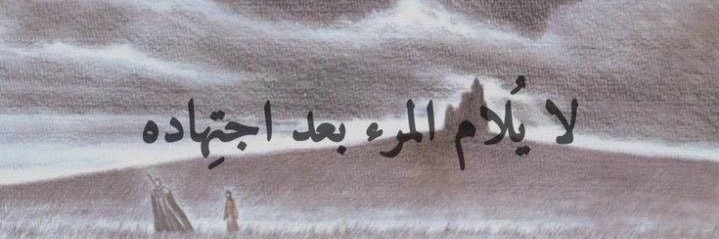 لا يُلام المرء بعد اجتِهاده